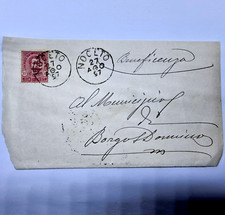 NOCETO
NOCETO
27
AGO
97
Beneficenza
Al Municipio
di
Borgo S. Donnino